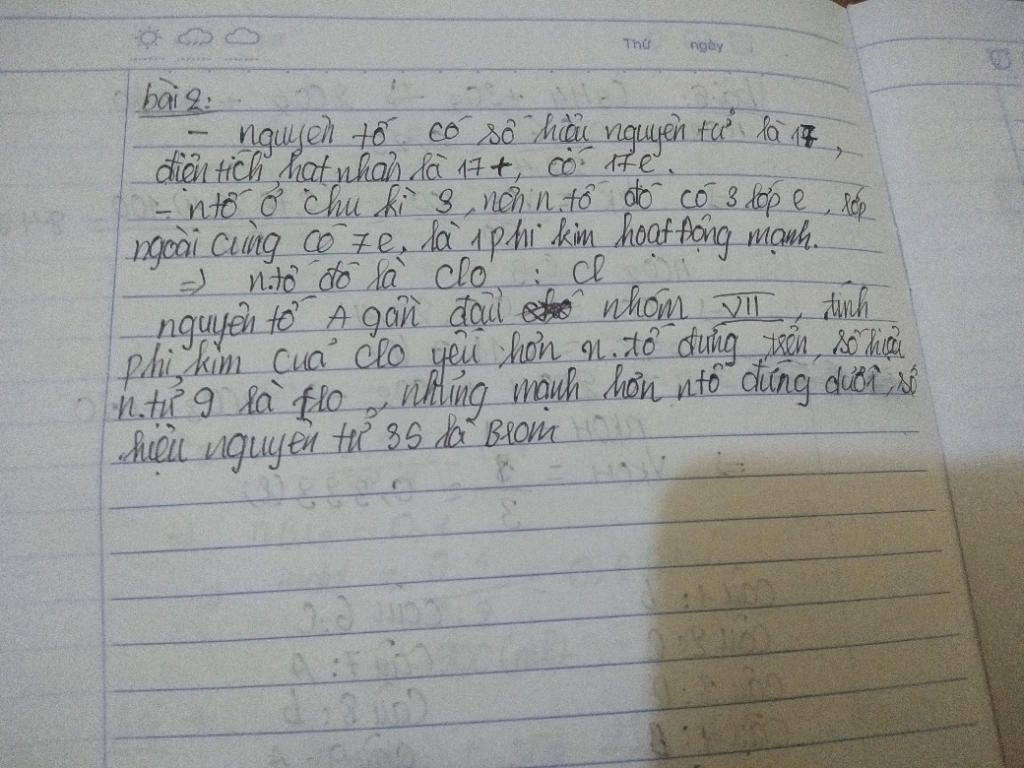 Thứ ngày
bài 2:
- nguyên tố có số hiệu nguyên tử là 17,
điện tích hạt nhân là 17+, có 17e.
- n tố ở chu kì 3, nên n.tố đó có 3 lớp e, lớp
ngoài cùng có 7e, là 1 phi kim hoạt động mạnh.
=> n.tố đó là Clo : Cl
nguyên tố A gần đầu nhóm VII, tính
phi kim của clo yếu hơn n.tố đứng trên, số hiệu
n.tử 9 là flo, nhưng mạnh hơn n tố đứng dưới, số
hiệu nguyên tử 35 là Brom